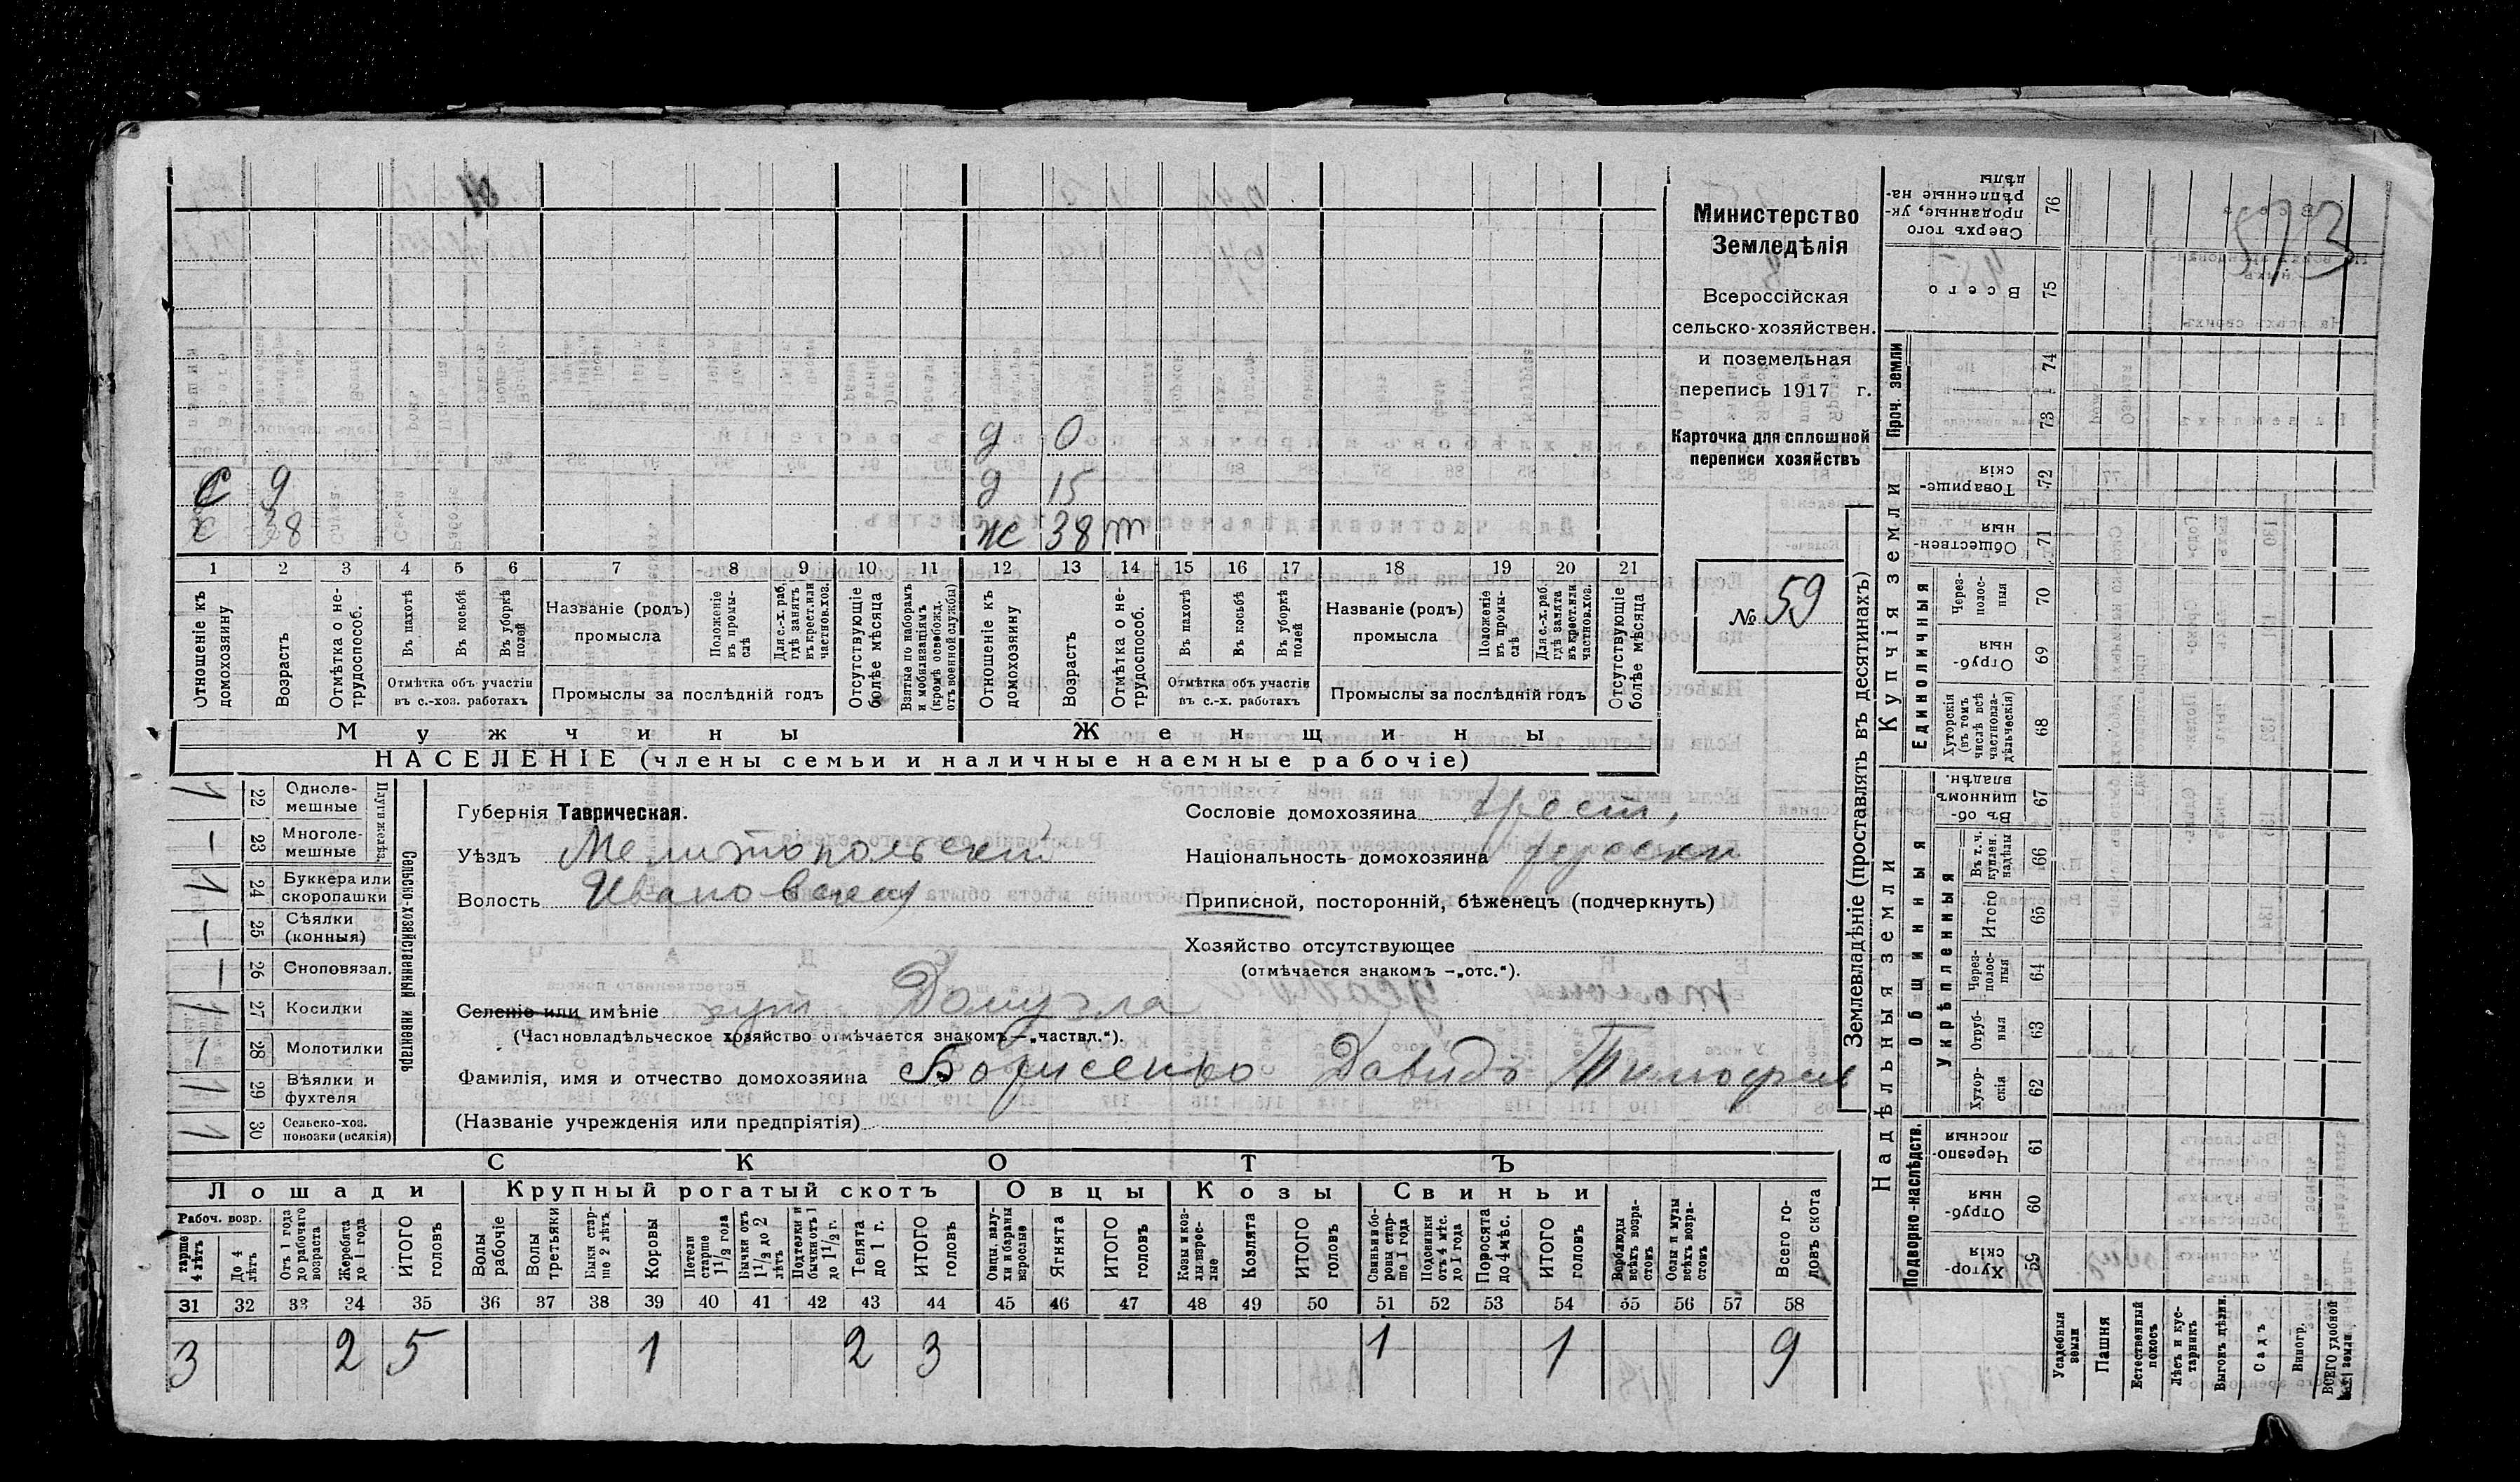 573
Министерство
Земледѣлія
Всероссійская
сельско-хозяйствен.
и поземельная
перепись 1917 г.
Карточка для сплошной
переписи хозяйствъ
№ 59
д 0
С 9 д 15
х 38 ж 38 m
1 2 3 4 5 6 7 8 9 10 11 12 13 14 15 16 17 18 19 20 21
Отношеніе къ домохозяину
Возрастъ
Отмѣтка о не-трудоспособ.
Въ пахотѣ
Въ косьбѣ
Въ уборкѣ полей
Отмѣтка объ участіи
въ с.-хоз. работахъ
Названіе (родъ)
промысла
Положеніе въ промы-слѣ
Для с.-х. раб. гдѣ занятъ въ крест. или частнов. хоз.
Промыслы за послѣдній годъ
Отсутствующіе болѣе мѣсяца
Взятые по наборамъ и мобилизаціямъ (кромѣ освобожд. отъ военной службы)
Отношеніе къ домохозяину
Возрастъ
Отмѣтка о не-трудоспособ.
Въ пахотѣ
Въ косьбѣ
Въ уборкѣ полей
Отмѣтка объ участіи
въ с.-х. работахъ
Названіе (родъ)
промысла
Положеніе въ промы-слѣ
Для с.-х. раб. гдѣ занята въ крест. или частнов. хоз.
Промыслы за послѣдній годъ
Отсутствующіе болѣе мѣсяца
Мужчины Женщины
НАСЕЛЕНІЕ (члены семьи и наличные наемные рабочіе)
Сельско-хозяйственный инвентарь
Плуги желѣз.
1 22 Одноле-мешные
— 23 Многоле-мешные
1 24 Буккера или скоропашки
— 25 Сѣялки (конныя)
— 26 Сноповязал.
1 27 Косилки
— 28 Молотилки
1 29 Вѣялки и фухтеля
1 30 Сельско-хоз. повозки (всякія)
Губернія Таврическая.
Уѣздъ Мелитопольскій
Волость Ивановская
Селеніе или имѣніе хут. Домузла
(Частновладѣльческое хозяйство отмѣчается знакомъ — „частвл.“).
Фамилія, имя и отчество домохозяина Борисенко Давидъ Тимофеев
(Названіе учрежденія или предпріятія)
Сословіе домохозяина крест,
Національность домохозяина русски
Приписной, посторонній, бѣженецъ (подчеркнуть)
Хозяйство отсутствующее
(отмѣчается знакомъ — „отс.“).
СКОТЪ
Лошади Крупный рогатый скотъ Овцы Козы Свиньи
Рабоч. возр.
старше 4 лѣтъ
До 4 лѣтъ
Отъ 1 года до рабочаго возраста
Жеребята до 1 года
ИТОГО головъ
Волы рабочіе
Волы третьяки
Быки стар-ше 2 лѣтъ
Коровы
Нетели старше 1 1/2 года
Бычки отъ 1 1/2 до 2 лѣтъ
Подтелки и бычки отъ 1 до 1 1/2 г.
Телята до 1 г.
ИТОГО головъ
Овцы, валу-хи и бараны взрослые
Ягнята
ИТОГО головъ
Козы и коз-лы взрос-лые
Козлята
ИТОГО головъ
Свиньи и бо-ровы стар-ше 1 года
Подсвинки отъ 4 мѣс. до 1 года
Поросята до 4 мѣс.
ИТОГО головъ
Верблюды всѣхъ возра-стовъ
Ослы и мулы всѣхъ возра-стовъ
Всего го-ловъ скота
31 32 33 34 35 36 37 38 39 40 41 42 43 44 45 46 47 48 49 50 51 52 53 54 55 56 57 58
3 2 5 1 2 3 1 1 9
Землевладѣніе (проставлять въ десятинахъ)
Надѣльныя земли
Купчія земли
Проч. земли
Подворно-наслѣдств.
Общинныя
Укрѣпленныя
Единоличныя
Хутор-скія 59
Отруб-ныя 60
Черезпо-лосныя 61
Хутор-скія 62
Отруб-ныя 63
Через-полос-ныя 64
Итого 65
Въ т. ч. куплен. надѣлы 66
Въ об-щинномъ владѣн. 67
Хуторскія (въ томъ числѣ всѣ частновла-дѣльческія) 68
Отруб-ныя 69
Через-полос-ныя 70
Обществен-ныя 71
Товарище-скія 72
73
74
Всего 75
Сверхъ того проданные, ук-рѣпленные на-дѣлы 76
Усадебныя земли
Пашня
Естественный покосъ
Лѣсъ и кус-тарникъ
Выгонъ дѣлин.
Садъ
Виногр.
ВСЕГО удобной земли